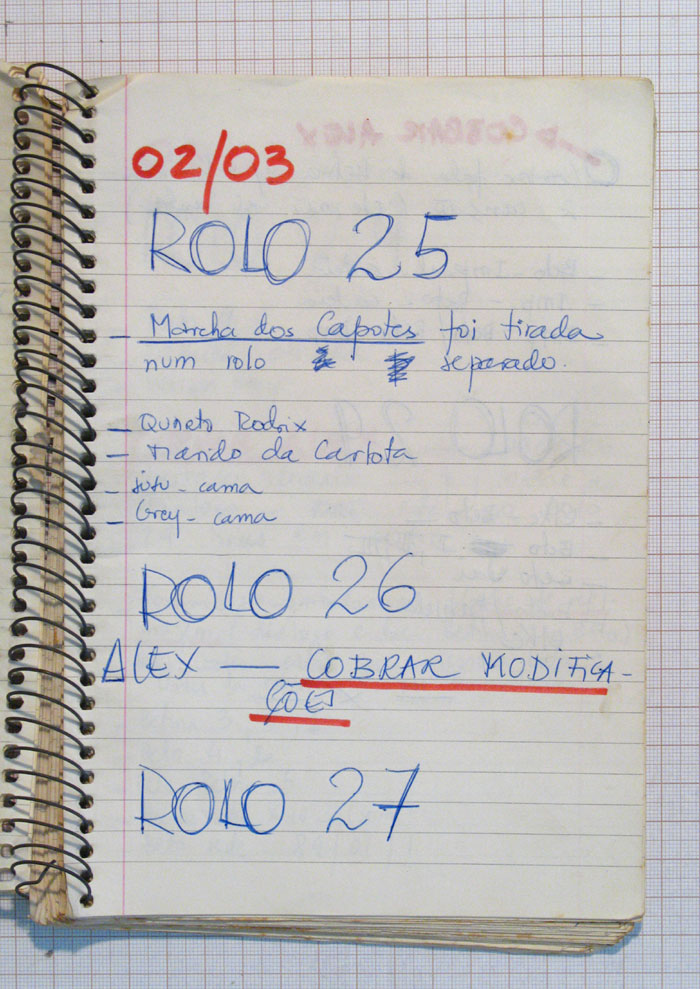 02/03
ROLO 25
- Marcha dos Capotes foi tirada
num rolo separado.
- Quneto Rodrix
- marido da Carlota
- juju - cama
- Grey - cama
ROLO 26
ALEX — COBRAR MODIFICA-
ÇÕES
ROLO 27